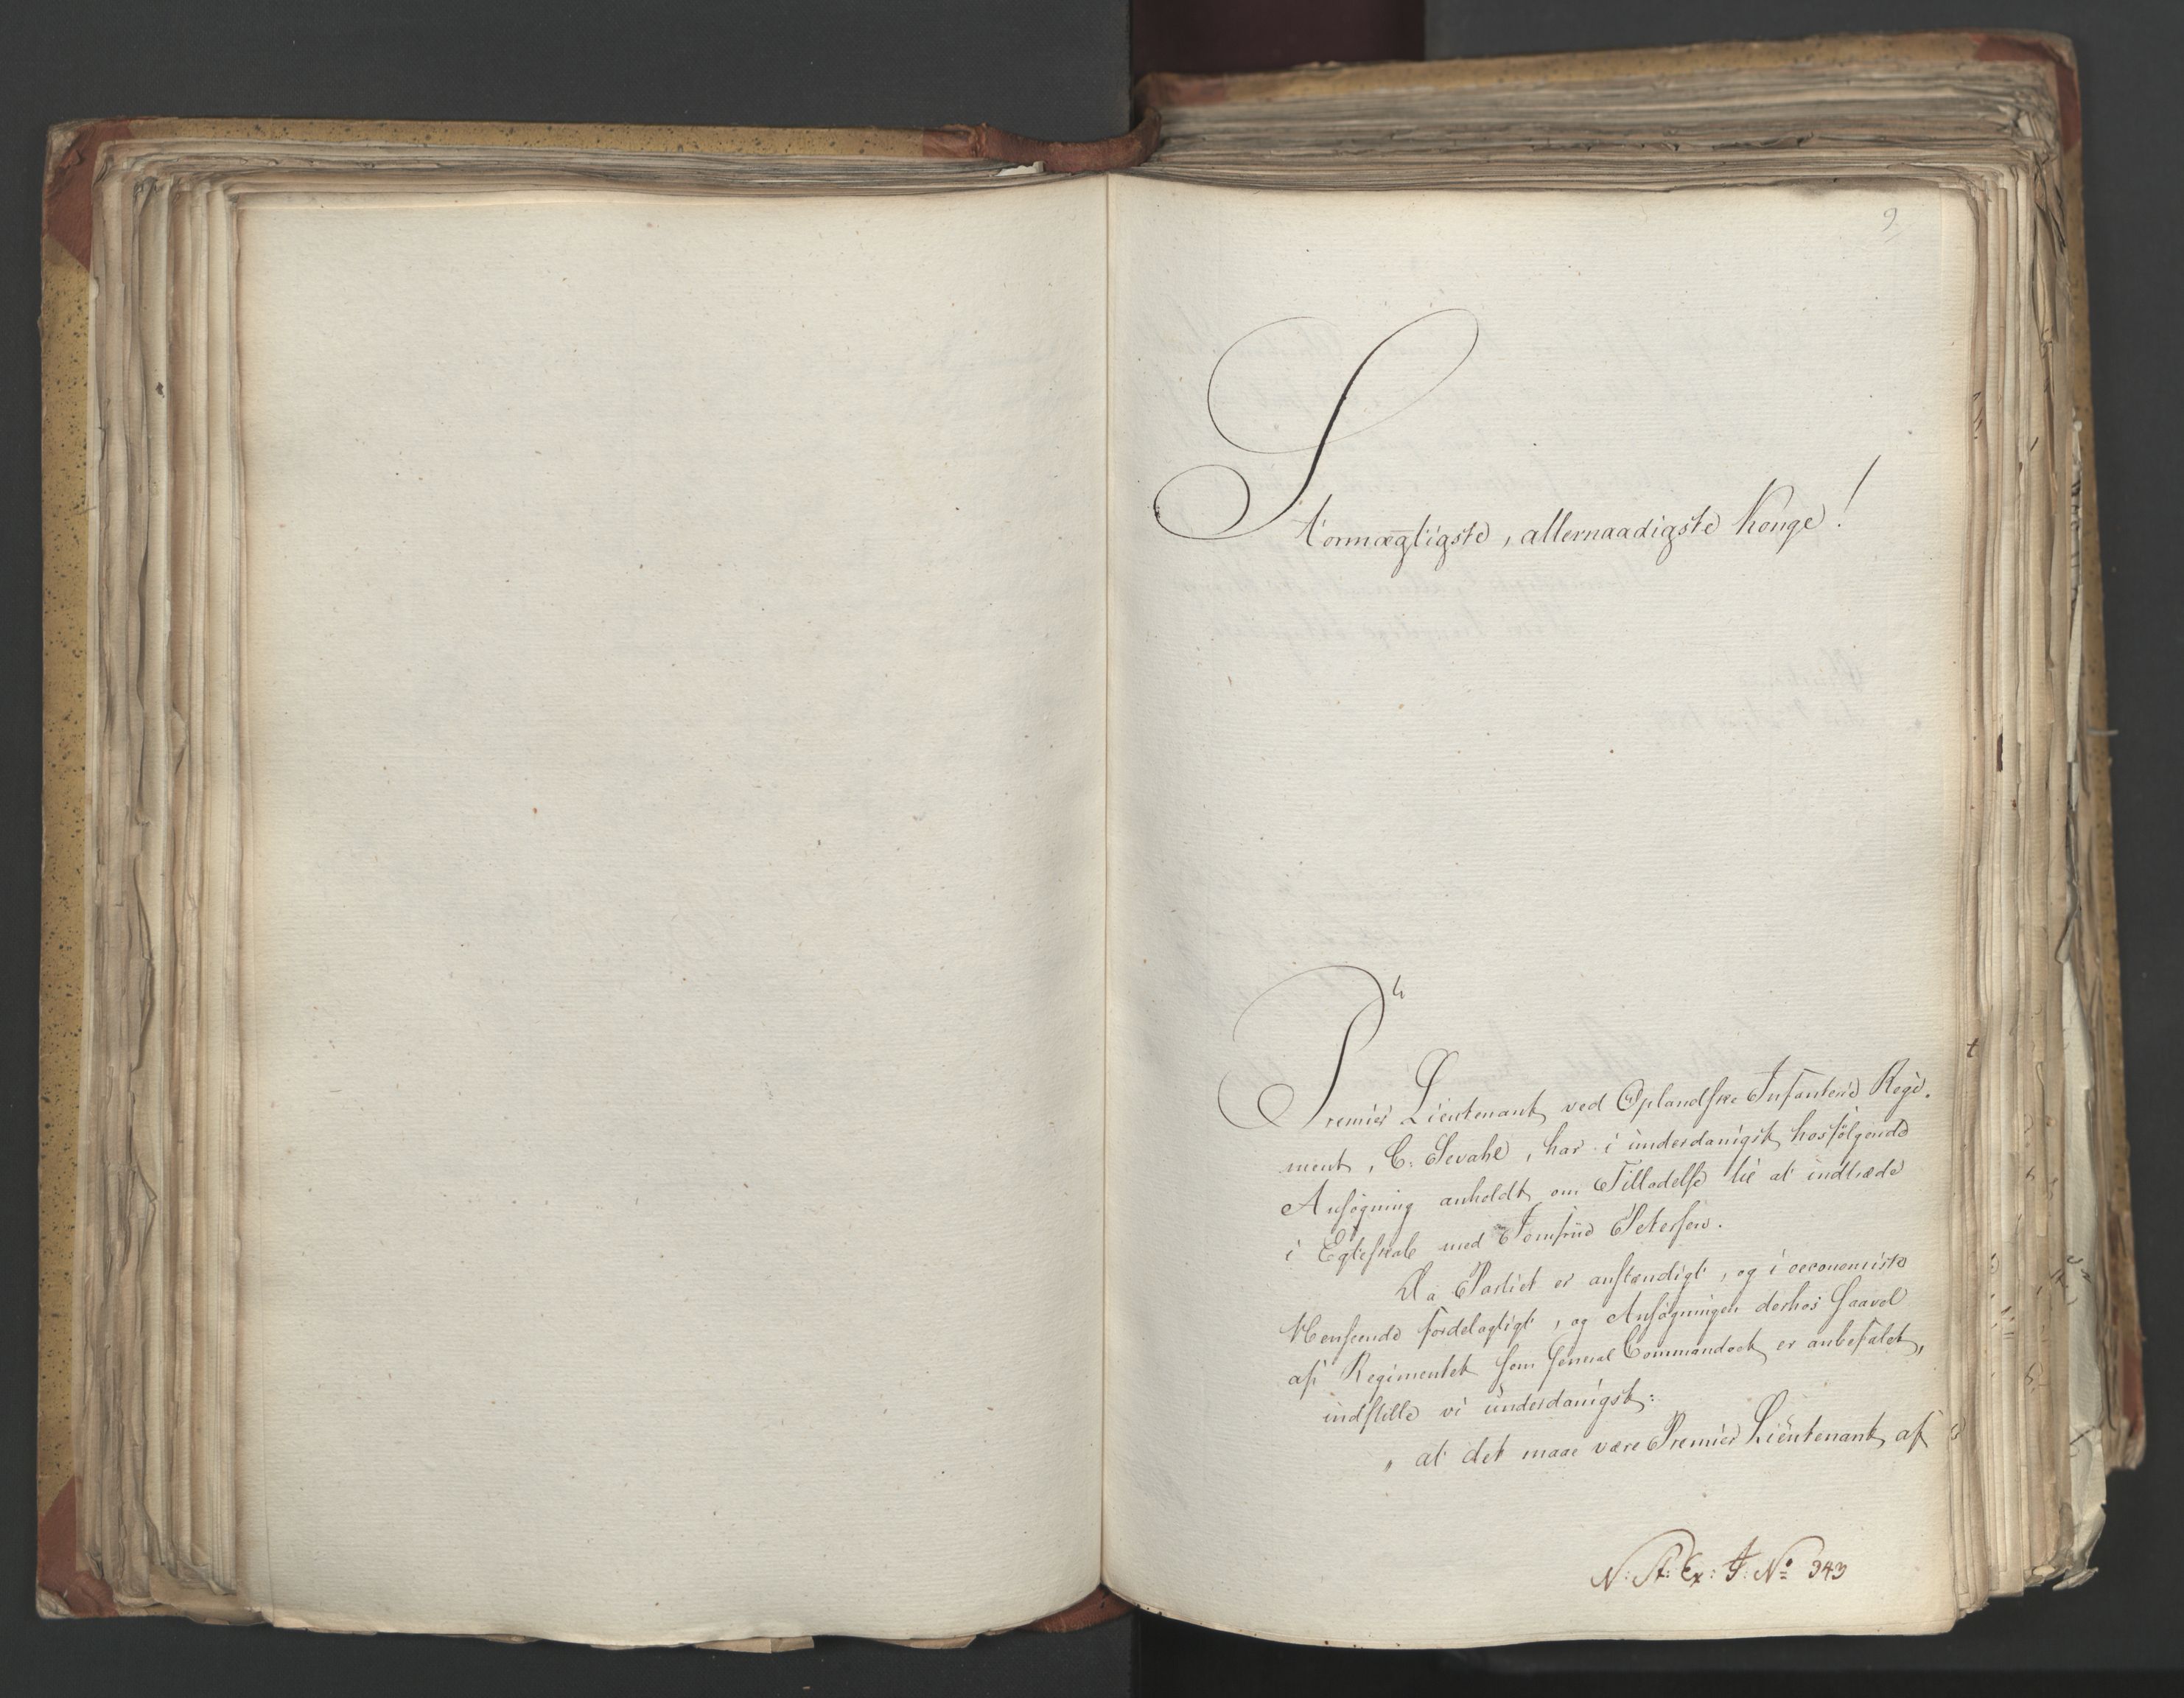 9.
Stormægtigste, allernaadigste Konge!
4
Premier Lieutenant ved Oplandske Infanterie Regi-
ment, C. Sevahl, har i underdanigst hosfølgende
Ansøgning anholdt om Tilladelse til at indtræde
i Egteskab med Jomfrue Petersen.
Da Partiet er anstændigt, og i oeconomiste
Henseende fordelagtigt, og Ansøgningen derhos saavel
af Regimentet som General Commandoet er anbefalet,
indstille vi underdanigst:
" at det maae være Premier Lieutenant af
N: St: Ex: J: No 343